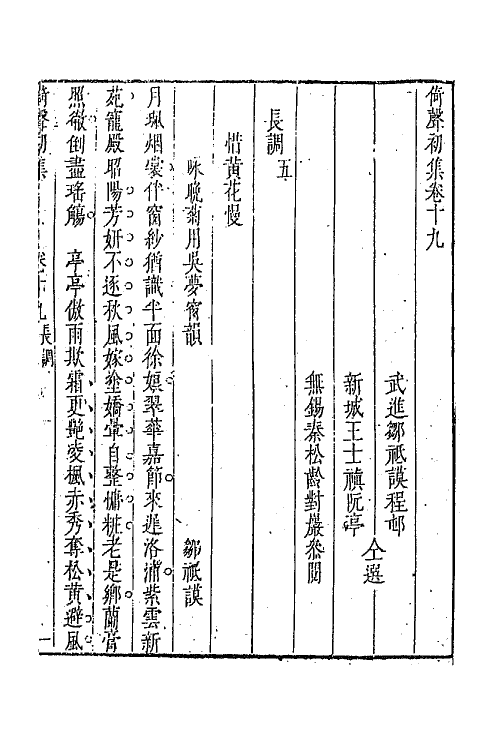 倚聲初集卷十九
武進鄒祗謨程邨
仝選
新城王士禛阮亭
無錫秦松齡對巖叅閱
長調五
惜黃花慢
咏晚菊用吳夢窗韻
鄒祗謨
月珮烟裳伴窗紗猶識半面徐孃翠華嘉節來遲洛浦紫雲新
苑寵殿昭陽芳妍不逐秋風嫁塗嬌暈自整慵粧老是鄉蘭膏
照徹倒盡瑤觴　亭亭傲雨欺霜更艷凌楓赤秀奪松黃避風
倚聲初集　卷十九長調　一